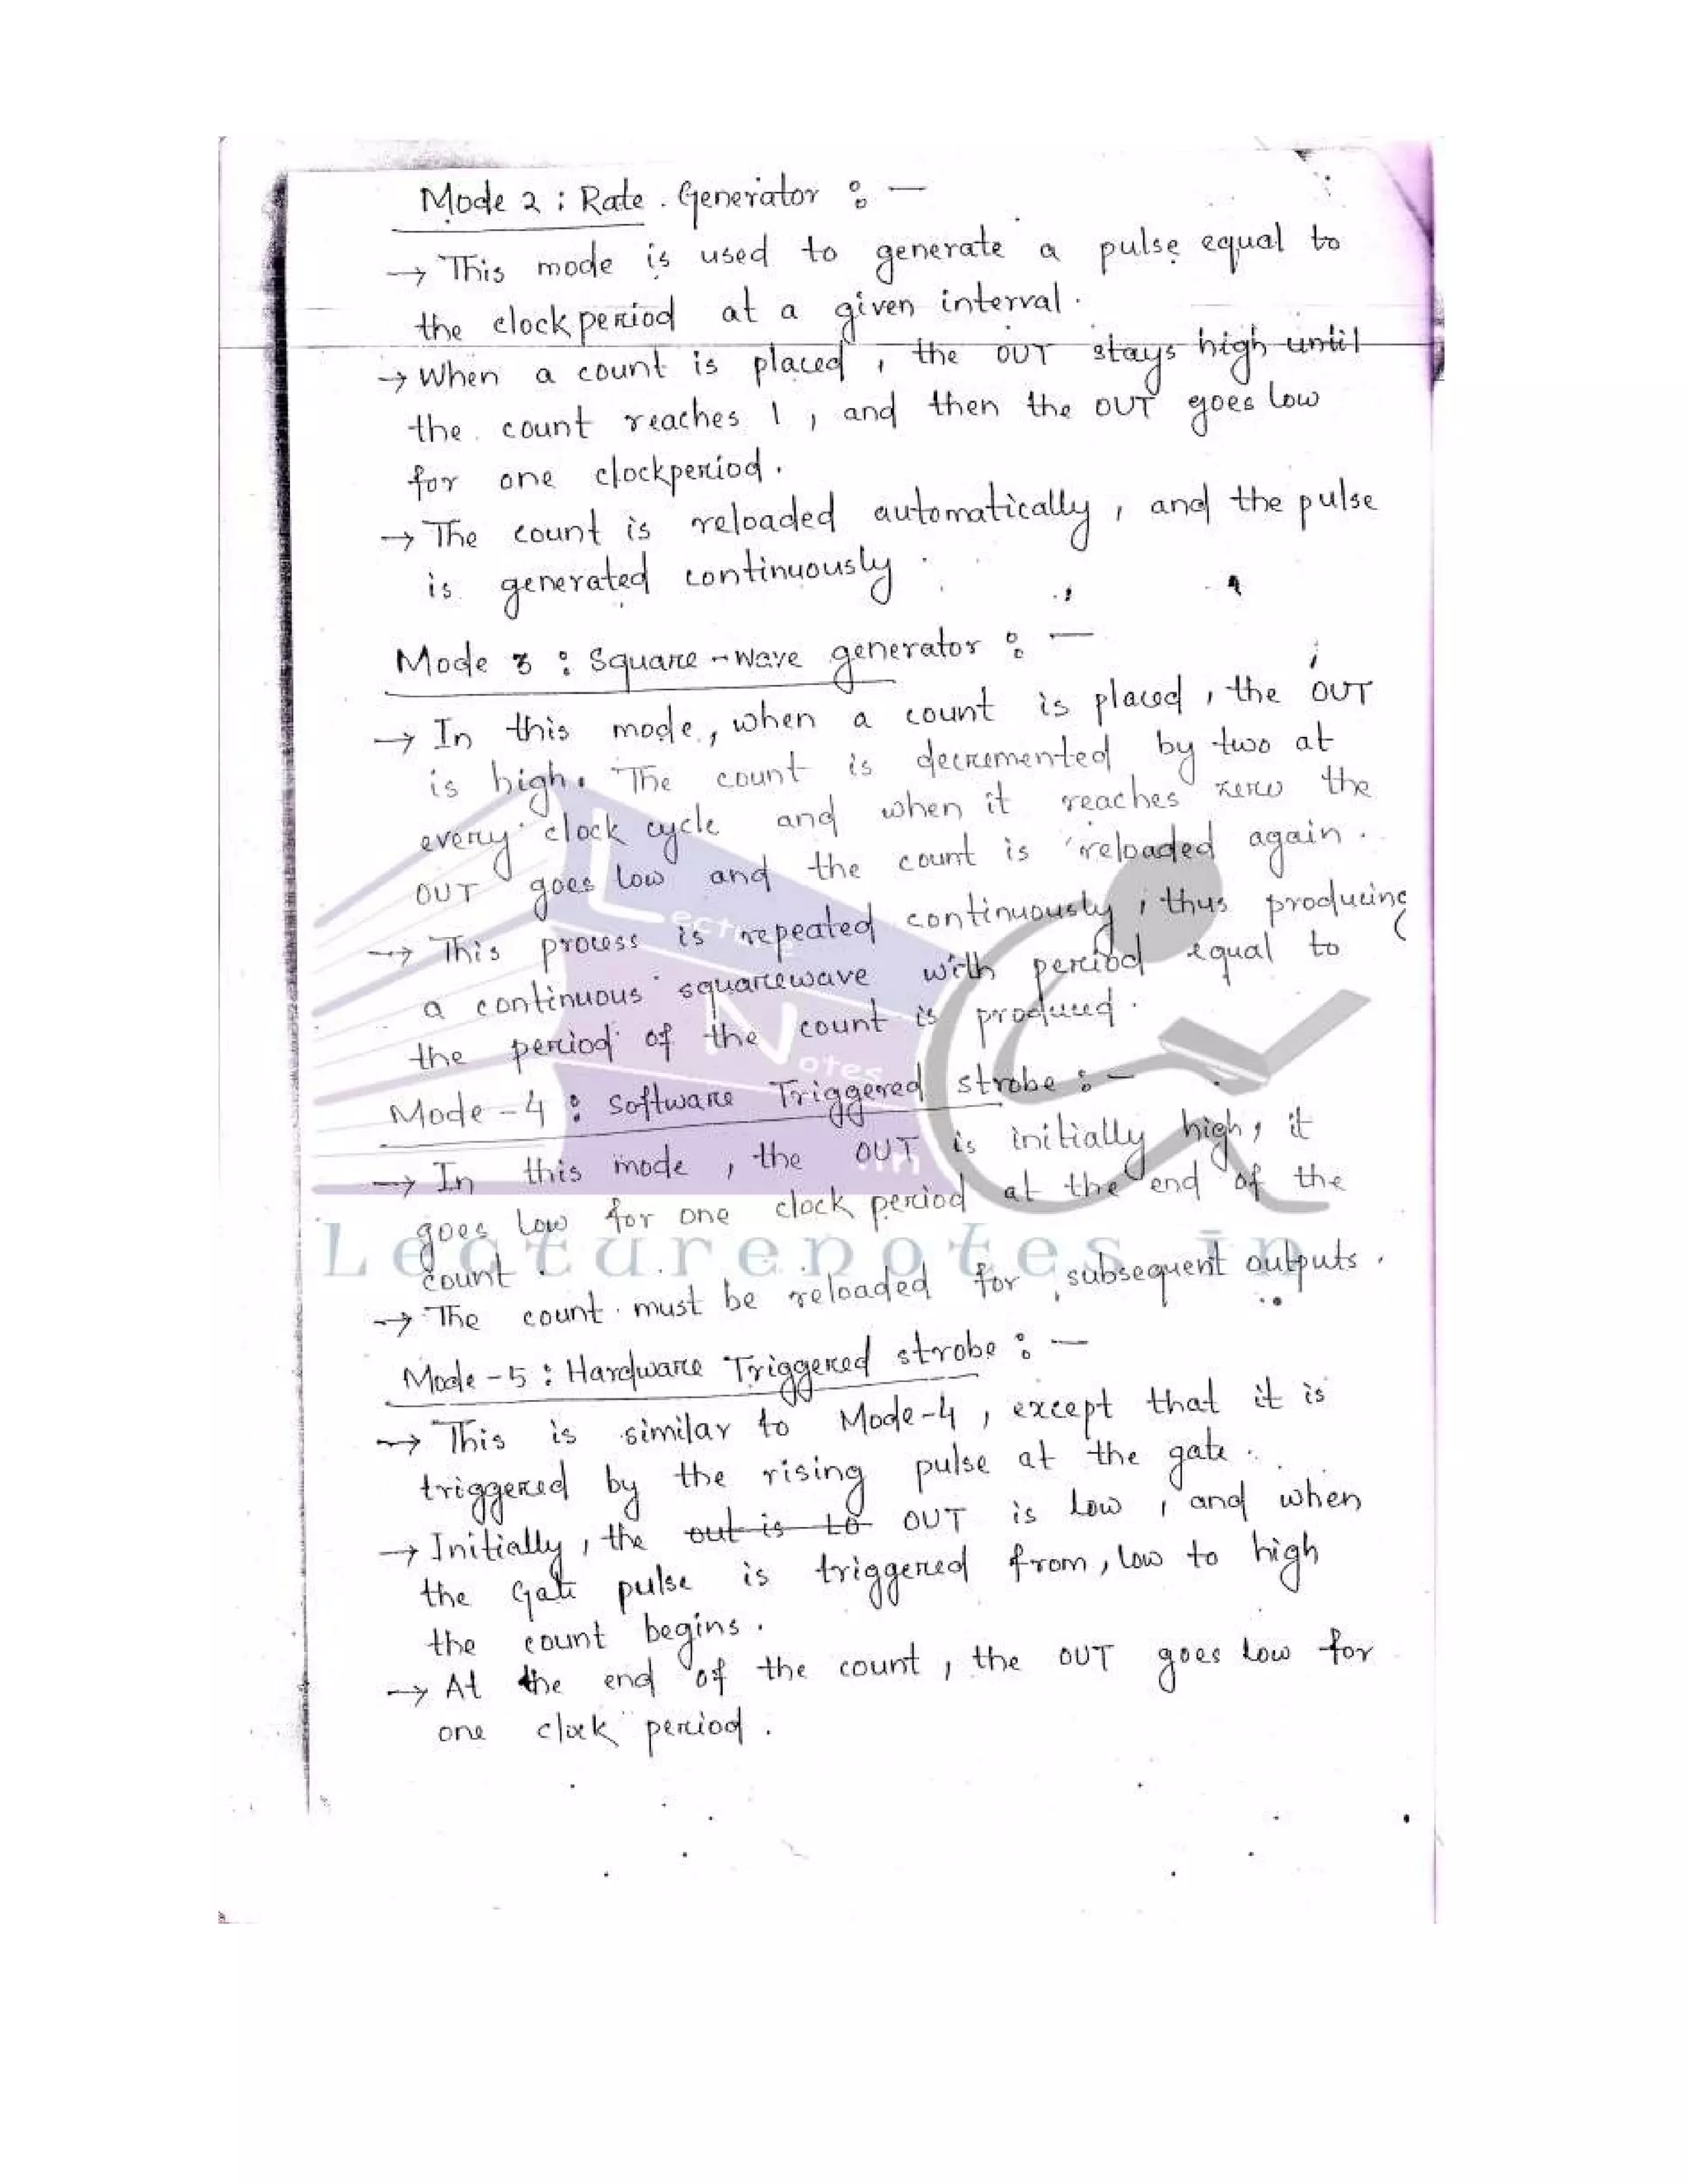 Mode 2 : Rate Generator : —
→ This mode is used to generate a pulse equal to
the clock period at a given interval.
→ When a count is placed, the OUT stays high until
the count reaches 1, and then the OUT goes low
for one clockperiod.
→ The count is reloaded automatically, and the pulse
is generated continuously.
Mode 3 : Square-wave generator : —
→ In this mode, when a count is placed, the OUT
is high. The count is decremented by two at
every clock cycle and when it reaches zero the
OUT goes low and the count is reloaded again.
→ This process is repeated continuously, thus producing
a continuous squarewave with period equal to
the period of the count is produced.
Mode - 4 : Software Triggered strobe : —
→ In this mode, the OUT is initially high, it
goes low for one clock period at the end of the
count.
→ The count must be reloaded for subsequent outputs.
Mode - 5 : Hardware Triggered strobe : —
→ This is similar to Mode-4, except that it is
triggered by the rising pulse at the gate.
→ Initially, the out is to OUT is low, and when
the Gate pulse is triggered from, low to high
the count begins.
→ At the end of the count, the OUT goes low for
one clock period.
Lecture
Notes
.in
Lecturenotes.in